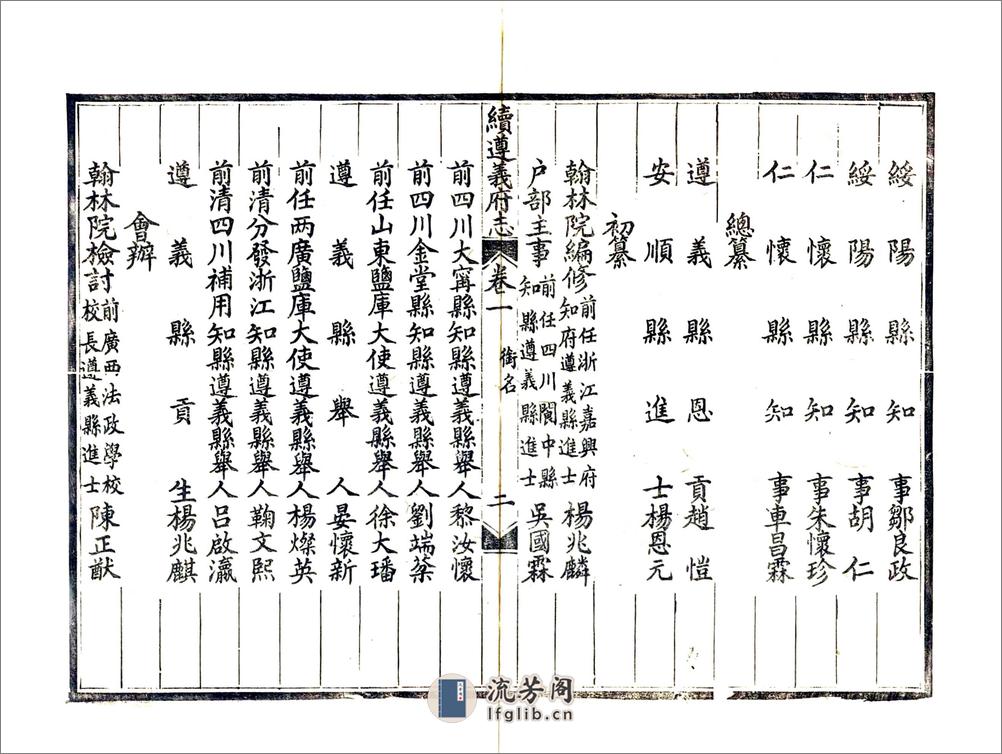 綏陽縣知事鄒良政
綏陽縣知事胡仁
仁懷縣知事朱懷珍
仁懷縣知事車昌霖
總纂
遵義縣恩貢趙愷
安順縣進士楊恩元
初纂
翰林院編修前任浙江嘉興府知府遵義縣進士楊兆麟
户部主事前任四川閬中縣知縣遵義縣進士吳國霖
續遵義府志 卷一 銜名 二
前四川大甯縣知縣遵義縣舉人黎汝懷
前四川金堂縣知縣遵義縣舉人劉端棻
前任山東鹽庫大使遵義縣舉人徐大璠
遵義縣舉人晏懷新
前任两廣鹽庫大使遵義縣舉人楊燦英
前清分發浙江知縣遵義縣舉人鞠文熙
前清四川補用知縣遵義縣舉人呂啟瀛
遵義縣貢生楊兆麒
會辦
翰林院檢討前廣西法政學校校長遵義縣進士陳正猷
流芳阁
lfglib.cn